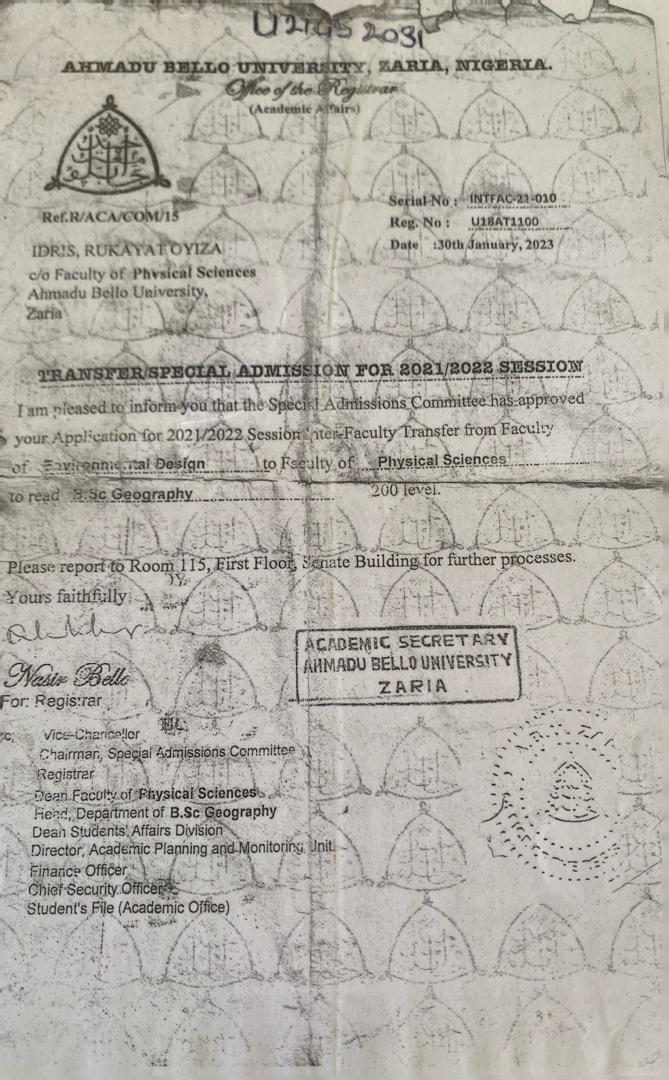 U21GS 2031
AHMADU BELLO UNIVERSITY, ZARIA, NIGERIA.
Office of the Registrar
(Academic Affairs)
Serial No : INTFAC-21-010
Ref.R/ACA/COM/15
Reg. No : U18AT1100
Date :30th January, 2023
IDRIS, RUKAYAT OYIZA
c/o Faculty of Physical Sciences
Ahmadu Bello University,
Zaria
TRANSFER/SPECIAL ADMISSION FOR 2021/2022 SESSION
I am pleased to inform you that the Special Admissions Committee has approved
your Application for 2021/2022 Session Inter-Faculty Transfer from Faculty
of Environmental Design to Faculty of Physical Sciences
to read B.Sc Geography 200 level.
Please report to Room 115, First Floor, Senate Building for further processes.
Yours faithfully
Nasir Bello
For: Registrar
ACADEMIC SECRETARY
AHMADU BELLO UNIVERSITY
ZARIA
c: Vice-Chancellor
Chairman, Special Admissions Committee
Registrar
Dean Faculty of Physical Sciences
Head, Department of B.Sc Geography
Dean Students' Affairs Division
Director, Academic Planning and Monitoring Unit
Finance Officer
Chief Security Officer
Student's File (Academic Office)